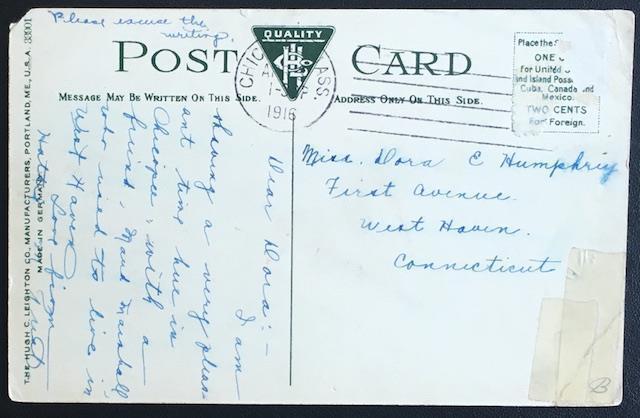 Please excuse the
writing.
POST CARD
QUALITY
MESSAGE MAY BE WRITTEN ON THIS SIDE.
ADDRESS ONLY ON THIS SIDE.
CHIC ASS.
1916
Place the S
ONE C
for United
and Island Poss
Cuba, Canada and
Mexico.
TWO CENTS
For Foreign.
Dear Dora:- I am
having a very pleas-
ant time here in
Chicopee with a
friend, Maud Marshall
who used to live in
West Haven.
Love from
Miss. Dora E Humphrey
First Avenue.
West Haven.
Connecticut
THE HUGH C. LEIGHTON CO., MANUFACTURERS, PORTLAND, ME., U.S.A. 33001
MADE IN GERMANY
B